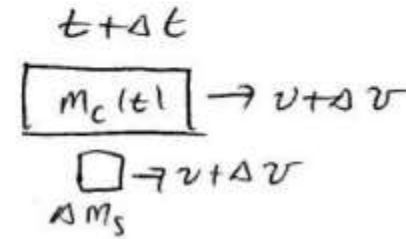 t + Δt
m_c(t) → v + Δv
→ v + Δv
Δm_s